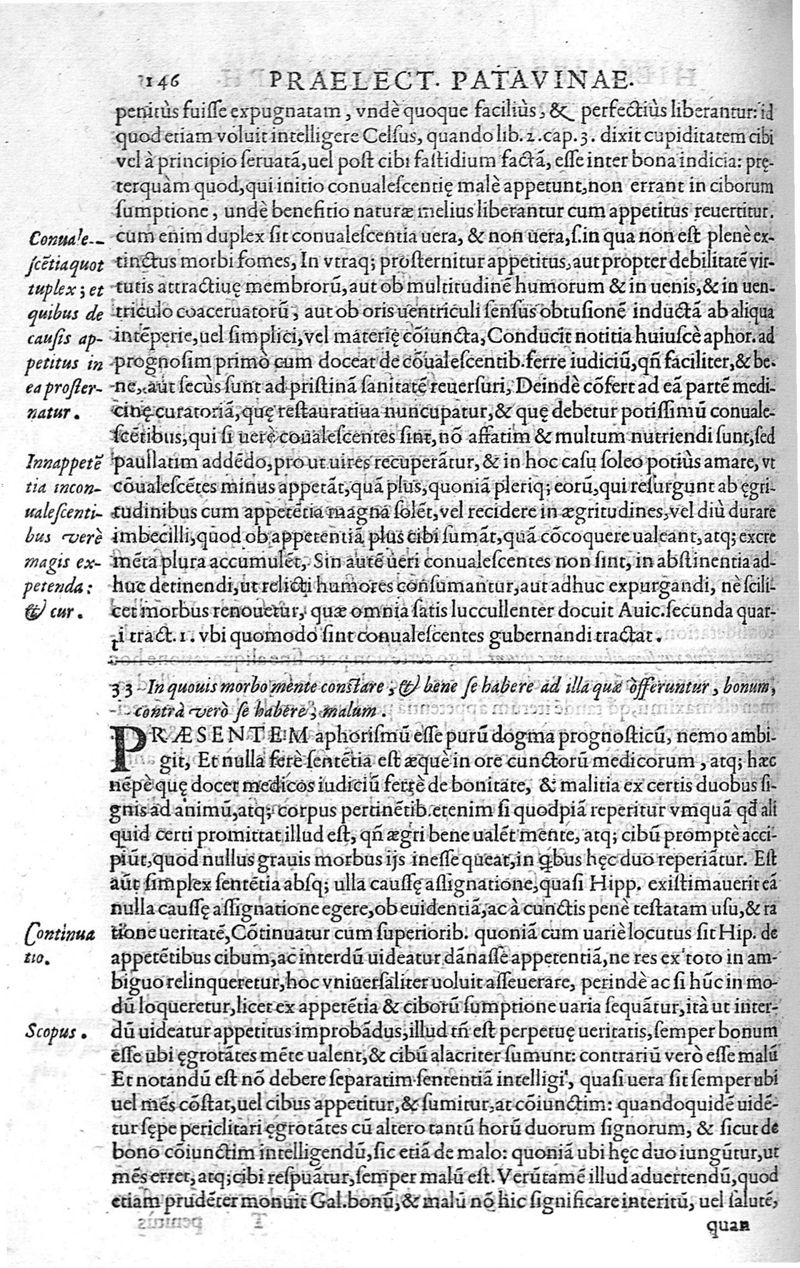 146 PRAELECT. PATAVINAE.
penitùs fuiſſe expugnatam, vndè quoque faciliùs, & perfectiùs liberantur: id
quod etiam voluit intelligere Celſus, quando lib. 2. cap. 3. dixit cupiditatem cibi
vel à principio ſeruatã, uel poſt cibi faſtidium factã, eſſe inter bona indicia: prę-
terquàm quod, qui initio conualeſcentię malè appetunt, non errant in ciborum
ſumptione, undè beneficio naturæ melius liberantur cum appetitus reuertitur.
cum enim duplex ſit conualeſcentia uera, & non uera, ſ. in qua non eſt plenè ex-
tinctus morbi fomes, In vtraq; proſternitur appetitus, aut propter debilitatẽ vir-
tutis attractiuę membrorũ, aut ob multitudinẽ humorum & in uenis, & in uen-
triculo coaceruatorũ; aut ob oris uentriculi ſenſus obtuſionẽ inductã ab aliqua
intẽperie, uel ſimplici, vel materię cõiuncta, Conducit notitia huiuſcè aphor. ad
prognoſim primò cum doceat de cõualeſcentib. ferre iudiciũ, qñ faciliter, & be-
ne, aut ſecùs ſunt ad priſtinã ſanitatẽ reuerſuri, Deindè cõfert ad eã partẽ medi-
cinę curatoriã, quę reſtauratiua nuncupatur, & quę debetur potiſſimũ conuale-
ſcẽtibus, qui ſi uerè cõualeſcentes ſint, nõ affatim & multum nutriendi ſunt, ſed
paullatim addẽdo, pro ut uires recuperãtur, & in hoc caſu ſoleo potiùs amare, vt
cõualeſcẽtes minus appetãt, quã plus, quoniã pleriq; eorũ, qui reſurgunt ab ęgri-
tudinibus cum appetẽtia magna ſolẽt, vel recidere in ægritudines, vel diù durare
imbecilli, quod ob appetentiã plus cibi ſumãt, quã cõcoquere ualeant, atq; excre
mẽta plura accumulẽt, Sin autẽ ueri conualeſcentes non ſint, in abſtinentia ad-
huc detinendi, ut relicti humores conſumantur, aut adhuc expurgandi, nè ſcili-
cet morbus renouetur, quæ omnia ſatis luccullenter docuit Auic. ſecunda quar-
ti tract. 1. vbi quomodo ſint conualeſcentes gubernandi tractat.
Conuale-
ſcẽtia quot
tuplex; et
quibus de
cauſis ap-
petitus in
ea proſter-
natur.
Innappetẽ
tia in con-
ualeſcenti-
bus verè
magis ex-
petenda:
& cur.
33 In quouis morbo mente conſtare, & bene ſe habere ad illa quæ offeruntur, bonum,
contrà verò ſe habere, malum.
PRÆSENTEM aphoriſmũ eſſe purũ dogma prognoſticũ, nemo ambi-
git, Et nulla ferè ſentẽtia eſt æquè in ore cunctorũ medicorum, atq; hæc
nẽpè quę docet medicos iudiciũ ferre de bonitate, & malitia ex certis duobus ſi-
gnis ad animũ, atq; corpus pertinẽtib. etenim ſi quodpiã reperitur vmquã qd̃ ali
quid certi promittat illud eſt, qñ ægri bene ualẽt mente, atq; cibũ promptè acci-
piũt, quod nullus grauis morbus ijs ineſſe queat, in qbus hęc duo reperiãtur. Eſt
aũt ſimplex ſentẽtia abſq; ulla cauſſę aſſignatione, quaſi Hipp. exiſtimauerit eã
nulla cauſſę aſſignatione egere, ob euidentiã, ac à cunctis penè teſtatam uſu, & ra
tione ueritatẽ, Cõtinuatur cum ſuperiorib. quoniã cum uariè locutus ſit Hip. de
appetẽtibus cibum, ac interdũ uideatur dãnaſſe appetentiã, ne res ex toto in am-
biguo relinqueretur, hoc vniuerſaliter uoluit aſſeuerare, perindè ac ſi hũc in mo-
dũ loqueretur, licet ex appetẽtia & ciborũ ſumptione uaria ſequãtur, ità ut inter-
dũ uideatur appetitus improbãdus, illud tñ eſt perpetuę ueritatis, ſemper bonum
eſſe ubi ęgrotãtes mẽte ualent, & cibũ alacriter ſumunt: contrariũ verò eſſe malũ
Et notandũ eſt nõ debere ſeparatim ſententiã intelligi, quaſi uera ſit ſemper ubi
uel mẽs cõſtat, uel cibus appetitur, & ſumitur, at cõiunctim: quandoquidẽ uidẽ-
tur ſępe periclitari ęgrotãtes cũ altero tantũ horũ duorum ſignorum, & ſicut de
bono cõiunctim intelligendũ, ſic etiã de malo: quoniã ubi hęc duo iungũtur, ut
mẽs erret, atq; cibi reſpuãtur, ſemper malũ eſt. Verũtamẽ illud aduertendũ, quod
etiam prudẽter monuit Gal. bonũ, & malũ nõ hic ſignificare interitũ, uel ſalutẽ,
Continua
tio.
Scopus.
quan